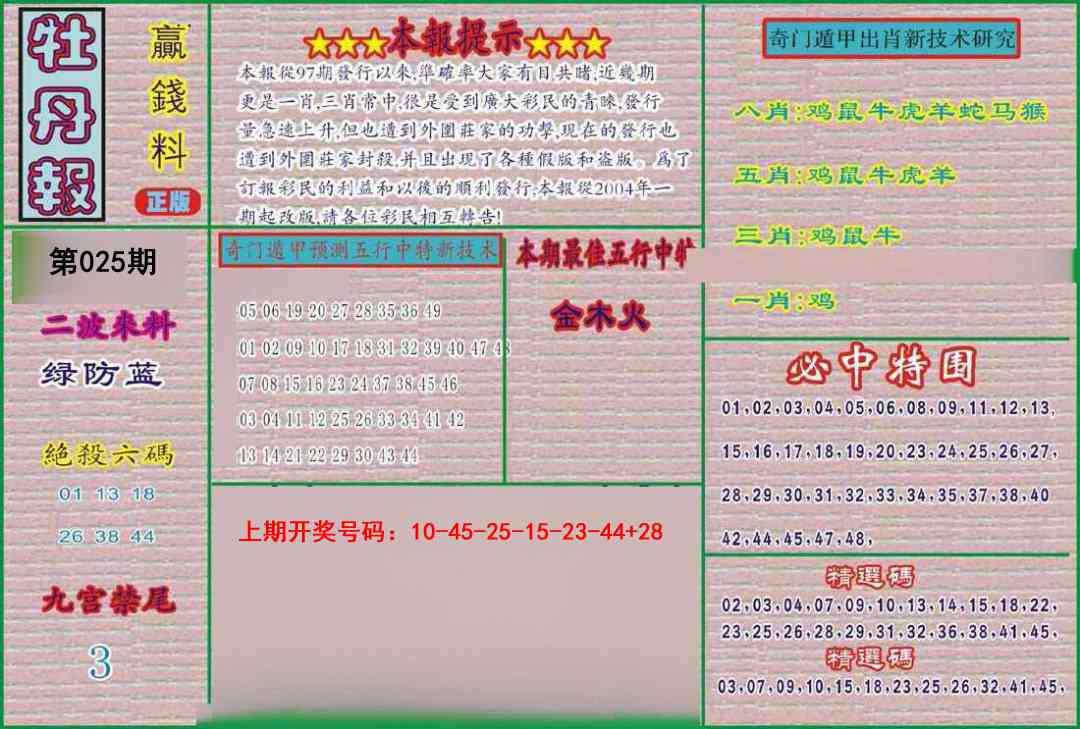 牡丹報
贏錢料
正版
★★★本報提示★★★
本報從97期發行以來,準確率大家有目共睹,近幾期
更是一肖,三肖常中,很是受到廣大彩民的青睞,發行
量急速上升,但也遭到外圍莊家的功擊,現在的發行也
遭到外圍莊家封殺,并且出現了各種假版和盗版。爲了
訂報彩民的利益和以後的順利發行,本報從2004年一
期起改版,請各位彩民相互轉告!
奇门遁甲出肖新技术研究
八肖:鸡鼠牛虎羊蛇马猴
五肖:鸡鼠牛虎羊
三肖:鸡鼠牛
一肖:鸡
第025期
二波来料
绿防蓝
絶殺六碼
01 13 18
26 38 44
九宫禁尾
3
奇门遁甲预测五行中特新技术
05 06 19 20 27 28 35 36 49
01 02 09 10 17 18 31 32 39 40 47 48
07 08 15 16 23 24 37 38 45 46
03 04 11 12 25 26 33 34 41 42
13 14 21 22 29 30 43 44
本期最佳五行中
金木火
上期开奖号码：10-45-25-15-23-44+28
必中特围
01,02,03,04,05,06,08,09,11,12,13,
15,16,17,18,19,20,23,24,25,26,27,
28,29,30,31,32,33,34,35,37,38,40
42,44,45,47,48,
精選碼
02,03,04,07,09,10,13,14,15,18,22,
23,25,26,28,29,31,32,36,38,41,45,
精選碼
03,07,09,10,15,18,23,25,26,32,41,45,